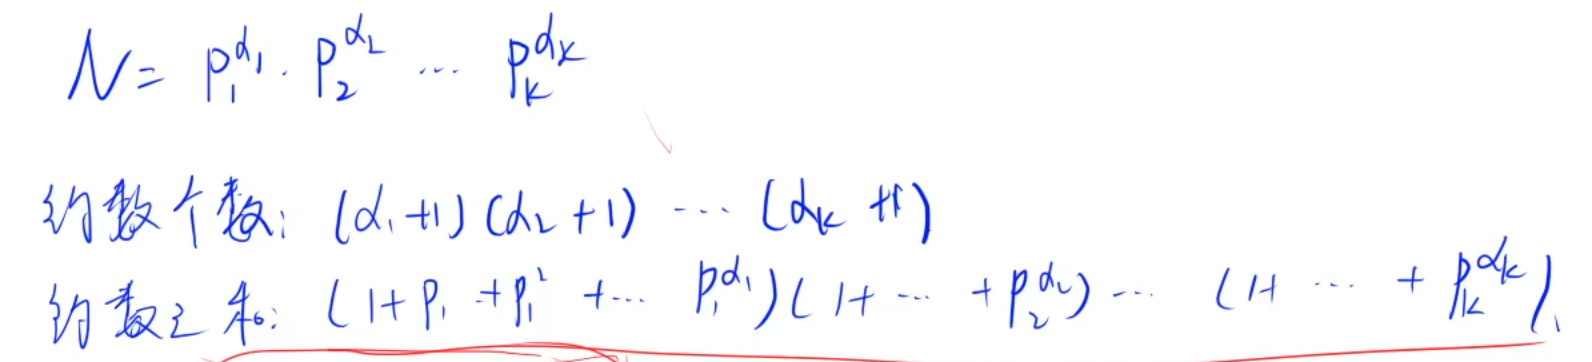 N = p₁^α₁ · p₂^α₂ ... p_k^α_k
约数个数: (α₁+1)(α₂+1) ... (α_k+1)
约数之和: (1+p₁+p₁²+... p₁^α₁)(1+...+p₂^α₂)...(1+...+p_k^α_k)